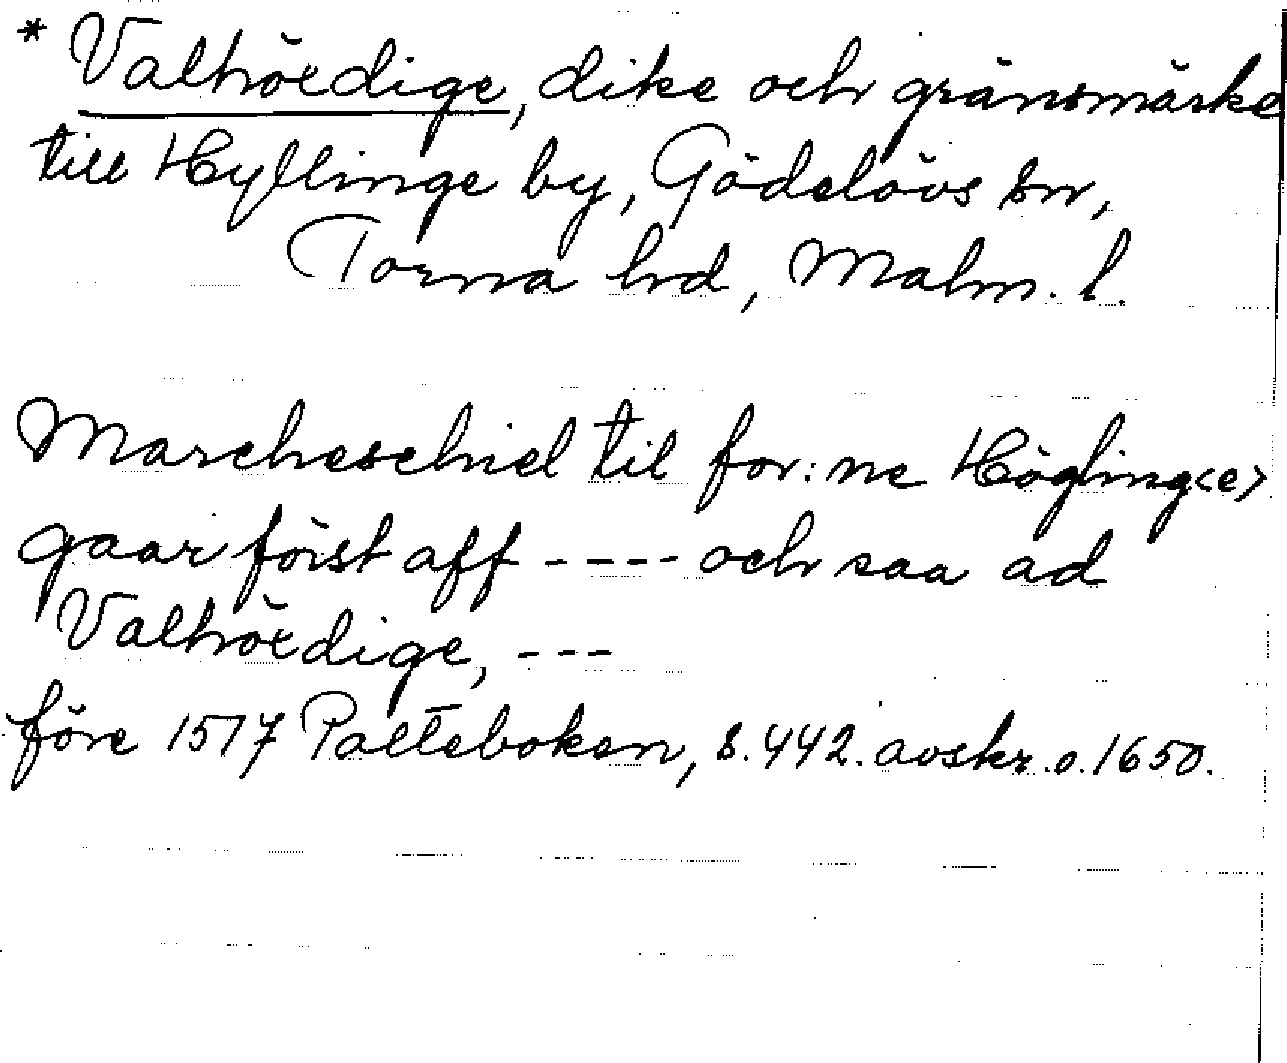 * Valhöedige, dike och gränsmärke
till Hyllinge by, Gödelövs sn,
Torna hrd, Malm. l.
Marcheschiel til for:ne Högling<e>
gaar först aff ---- och saa ad
Valhöedige, ---
före 1517 Palteboken, s. 442. avskr. o. 1650.